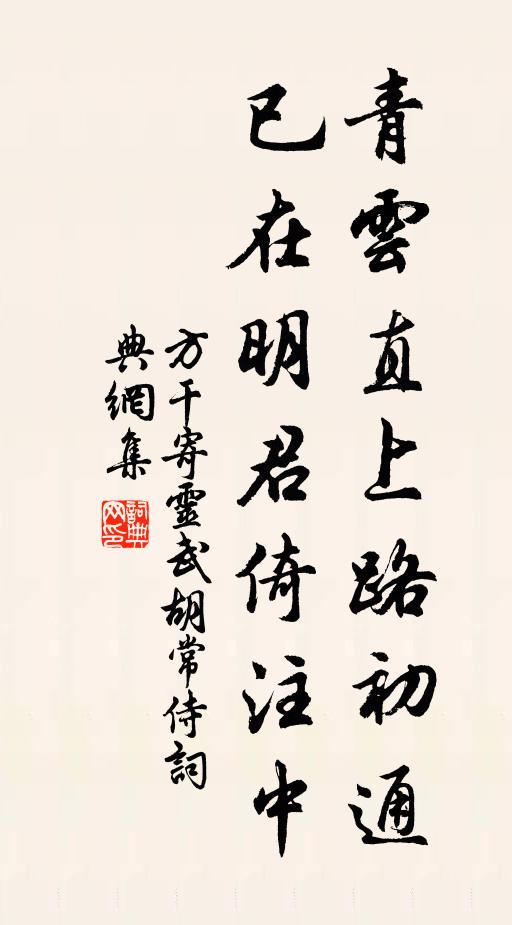 青雲直上路初通
已在明君倚注中
方干寄靈武胡常侍詞
典網集
詞典網印